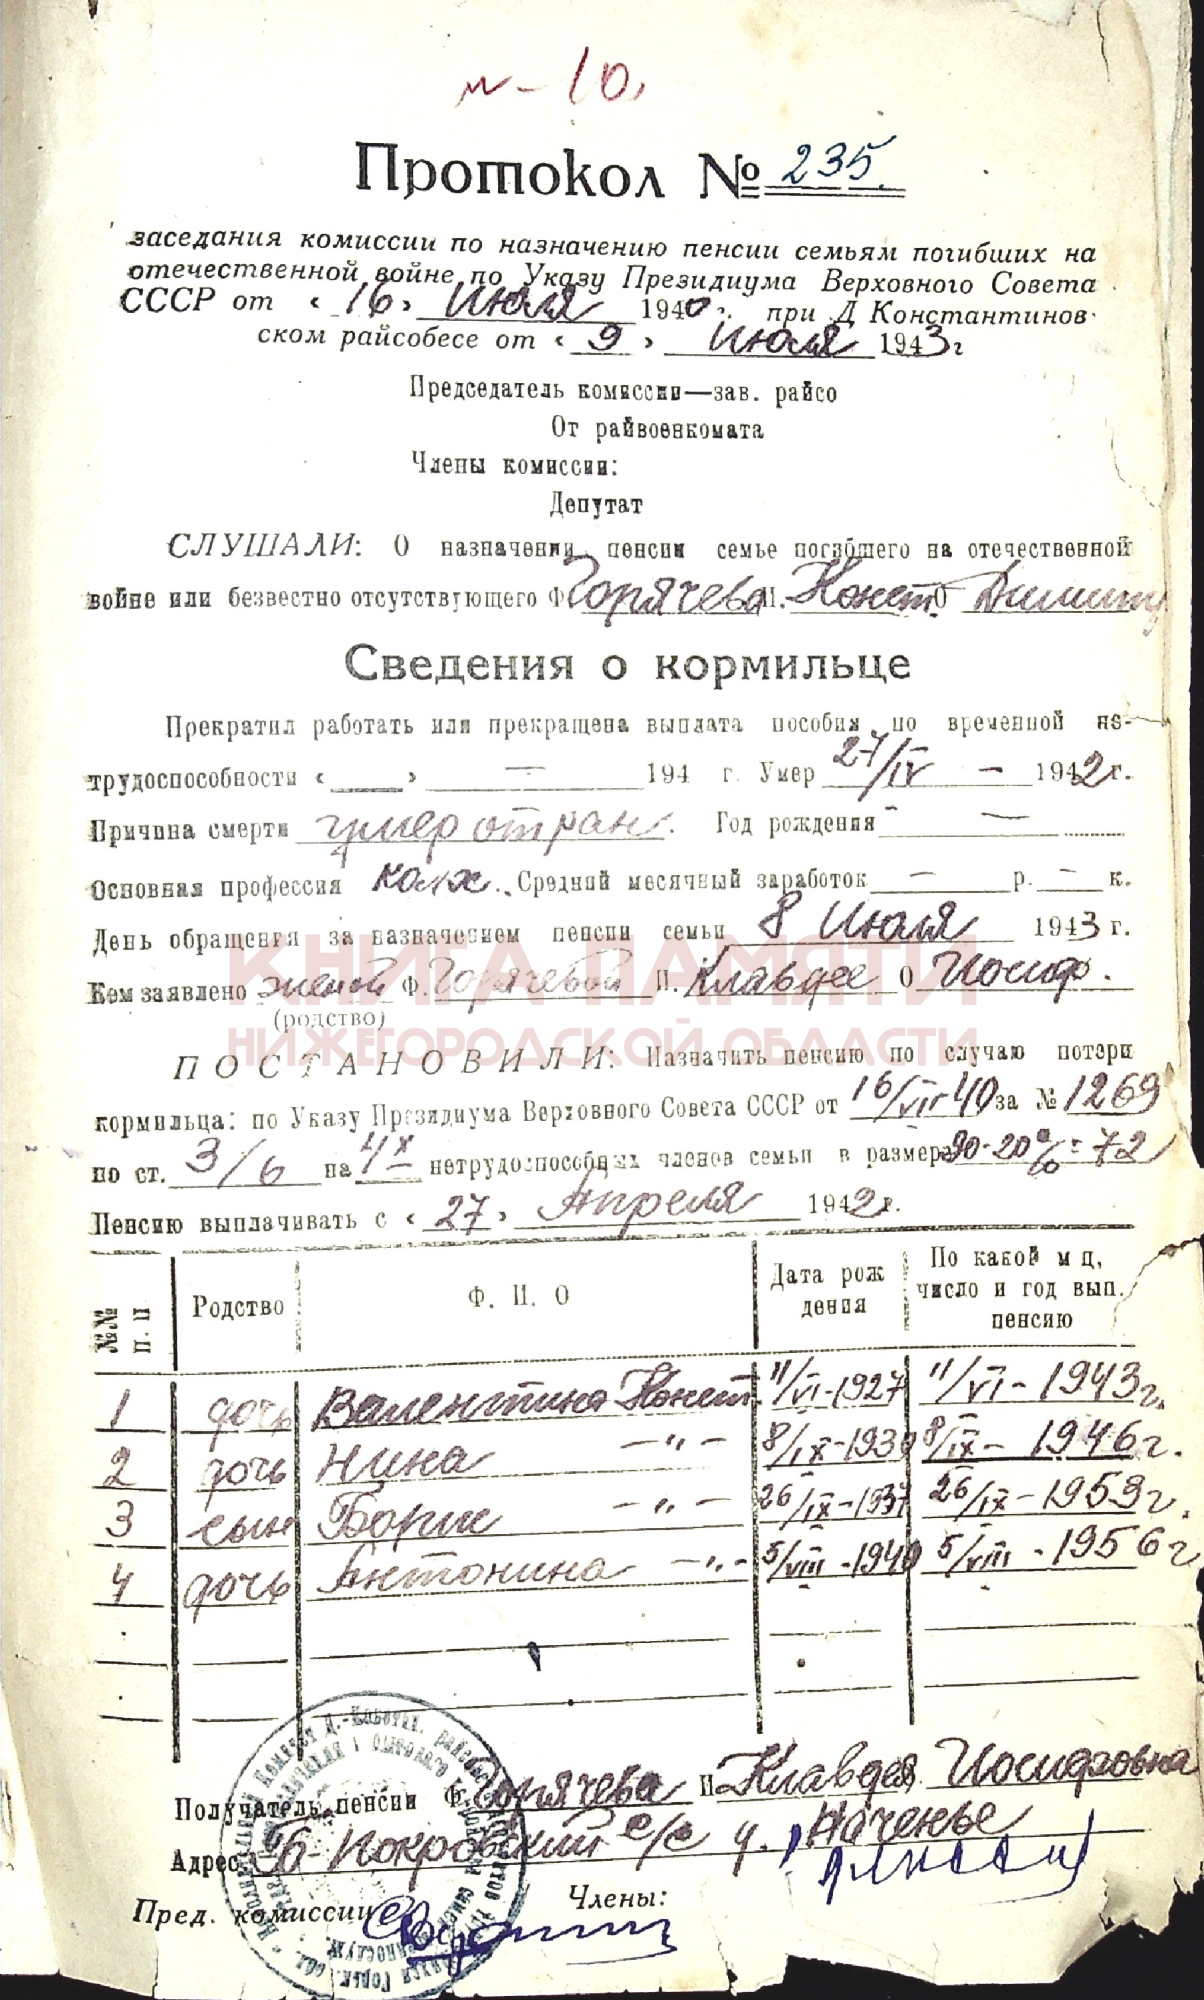 м-10,
Протокол № 235.
заседания комиссии по назначению пенсии семьям погибших на
отечественной войне по Указу Президиума Верховного Совета
СССР от « 16 » Июля 1940 г. при Д Константинов-
ском райсобесе от « 9 » Июля 1943 г
Председатель комиссии—зав. райсо
От райвоенкомата
Члены комиссии:
Депутат
СЛУШАЛИ: О назначении пенсии семье погибшего на отечественной
войне или безвестно отсутствующего Ф Горячева И. Конст О Димит
Сведения о кормильце
Прекратил работать или прекращена выплата пособия по временной не-
трудоспособности « » — 194 г. Умер 27/IV — 1942 г.
Причина смерти умер от ран. Год рождения — —
Основная профессия колх. Средний месячный заработок — р. — к.
День обращения за назначением пенсии семьи 8 Июля 1943 г.
Кем заявлено женой Ф. Горячевой И. Клавдее О Иосиф.
(родство)
КНИГА ПАМЯТИ
НИЖЕГОРОДСКОЙ ОБЛАСТИ
ПОСТАНОВИЛИ: Назначить пенсию по случаю потери
кормильца: по Указу Президиума Верховного Совета СССР от 16/VII 40 за № 1269
по ст. 3/6 на 4х нетрудоспособных членов семьи в размере 90-20%=72
Пенсию выплачивать с « 27 » Апреля 1942 г.
№№ п.п Родство Ф. И. О Дата рож дения По какой м ц, число и год вып. пенсию
1 дочь Валентина Конст 11/VI-1927 11/VI-1943 г.
2 дочь Нина —"— 8/IX-1930 8/IX-1946 г.
3 сын Борис —"— 26/IX-1937 26/IX-1953 г.
4 дочь Антонина —"— 5/VIII-1940 5/VIII-1956 г
Получатель пенсии Ф. Горячева И Клавдея О. Иосифовна
Адрес Покровский с/с Наченье
Пред. комиссии Члены: